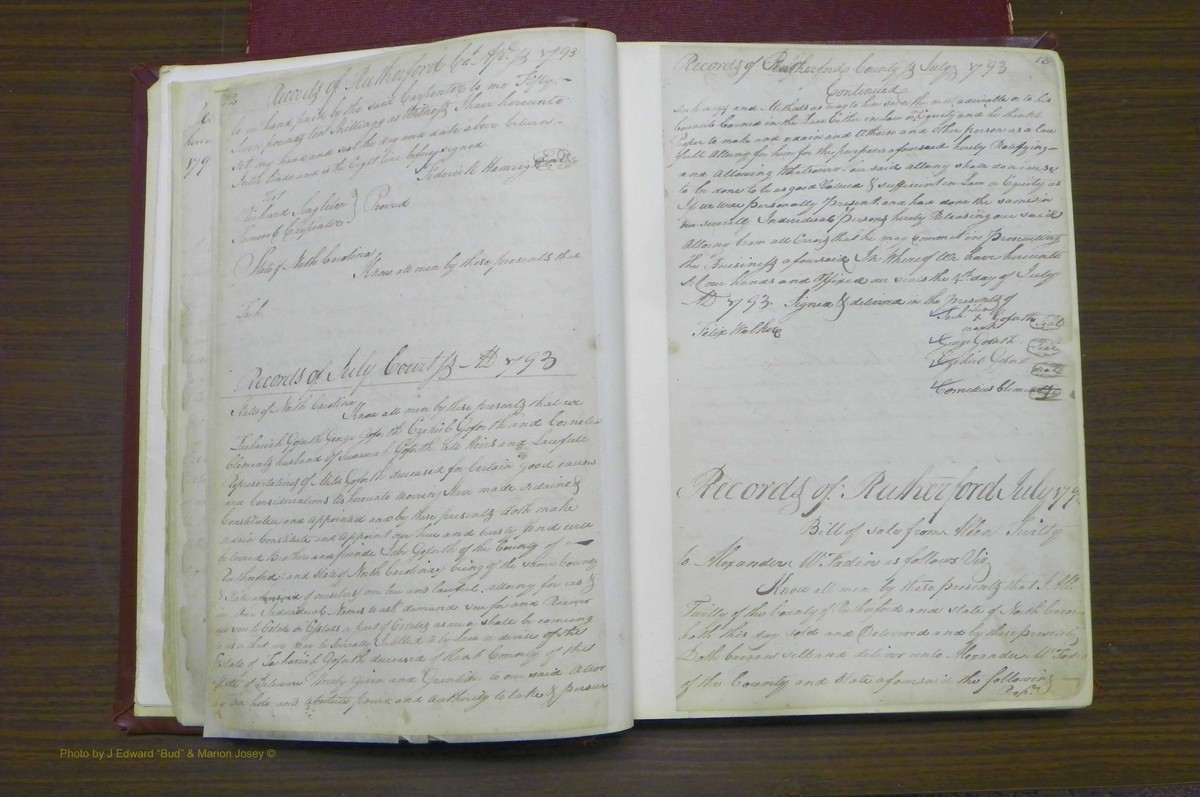 Records of Rutherford Ca Apr 1793
to in hand paid by the said Carpenter to me Fifty
Seven pounds ten Shillings as Witness I have hereunto
set my hand and seal the day and date above written
Frederick Hamrig Seal
Test
Richard Singleton } Proved
Samuel Carpenter
State of North Carolina
Know all men by these presents that
Zach
Records of July Court AD 1793
State of North Carolina
Know all men by these presents that we
Zachariah Goforth George Goforth Ezekiel Goforth and Cornelius
Clements husband of Susannah Goforth Heirs and Lawfull
Representatives of Miles Goforth deceased for Certain Good causes
and Considerations us hereunto moving Have made ordaind
Constituted and appointed and by these presents doth make
ordain Constitute and appoint our true and trusty and well
beloved Brother and friend Goforth of the County of
Rutherford and State of North Carolina being of the same County
& State of ourselves our true and lawful attorney for us &
in our Individual Names to ask demand sue for and Recover
Estate or Estates or part of Estates as may shall be coming
to us as we may be Intitled to by law or devise of the
Estate of Zachariah Goforth deceased of Kent County of this
State of Delaware Hereby Given and Granting to our said Attor
ney our whole and absolute power and authority to take & pursue
Records of Rutherford County July 1793 13
Continued
Such ways and Methods as may to him seem the most advisable or to his
Councils Learned in the Laws Either in Law or Equity and he thinks
proper to make and ordain and other person as a Law
full Attorny for him for the purposes aforesaid hereby Ratifying
and Allowing Whatsoever our said attorny shall do or cause
to be done to be as good Valued & sufficient in Law or Equity as
If we were personally Present and had done the same in
our severally Individual Persons hereby Releasing our said
Attorny from all Errors that he may commit in Prosecuting
the Business aforesaid In Whereof We have hereunto
set our hands and Affixed our seals the 4th day of July
AD 1793. Signed & delivered in the presents of
Felix Walker
Zach his x Goforth Seal
mark
George Goforth Seal
Ezekiel Goforth Seal
Cornelius Clements
Records of Rutherford July 179
Bill of sale from Allen Twitty
to Alexander McFadin as follows Viz
Know all men by these presents that I Allen
Twitty of the County of Rutherford and State of North Carolina
hath this day sold and Delivered and by these presents
Doth bargain sell and deliver unto Alexander McFadin
of the County and State aforesaid the following
Photo by J Edward "Bud" & Marion Josey ©